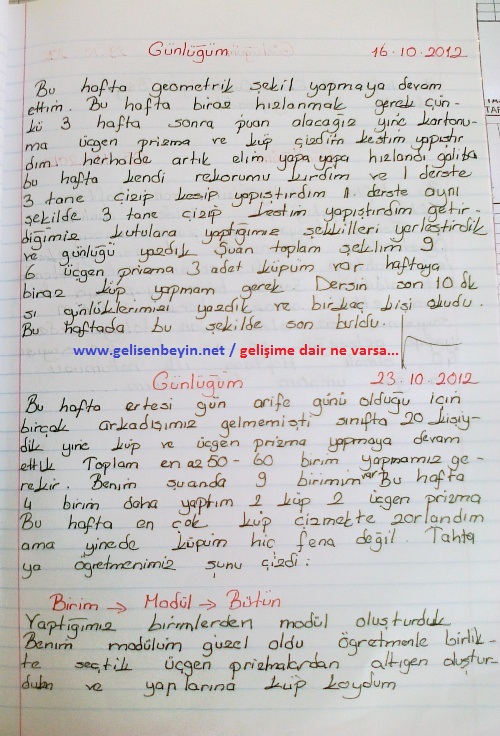 Günlüğüm 16.10.2012
Bu hafta geometrik şekil yapmaya devam
ettim. Bu hafta biraz hızlanmak gerek çün-
kü 3 hafta sonra puan alacağız yine kartonu-
ma üçgen prizma ve küp çizdim kestim yapıştır
dım herhalde artık elim yapa yapa hızlandı galiba
bu hafta kendi rekorumu kırdım ve 1 derste
3 tane çizip kesip yapıştırdım 1 derste aynı
şekilde 3 tane çizip kestim yapıştırdım getir-
diğimiz kutulara yaptığımız şekilleri yerleştirdik
ve günlüğü yazdık Şuan toplam şeklim 9
6 üçgen prizma 3 adet küpüm var haftaya
biraz küp yapmam gerek Dersin son 10 dk
sı günlüklerimizi yazdık ve birkaç kişi okudu.
Bu haftada bu şekilde son buldu.
www.gelisenbeyin.net / gelişime dair ne varsa...
Günlüğüm 23.10.2012
Bu hafta ertesi gün arife günü olduğu için
birçok arkadaşımız gelmemişti sınıfta 20 kişiy-
dik yine küp ve üçgen prizma yapmaya devam
ettik Toplam en az 50-60 birim yapmamız ge-
rekir. Benim şuanda 9 birimim var Bu hafta
4 birim daha yaptım 2 küp 2 üçgen prizma
Bu hafta en çok küp çizmekte zorlandım
ama yinede küpüm hiç fena değil. Tahta
ya öğretmenimiz şunu çizdi:
Birim → Modül → Bütün
Yaptığımız birimlerden modül oluşturduk
Benim modülüm güzel oldu öğretmenle birlik-
te seçtik üçgen prizmalardan altıgen oluştur-
dum ve yanlarına küp koydum